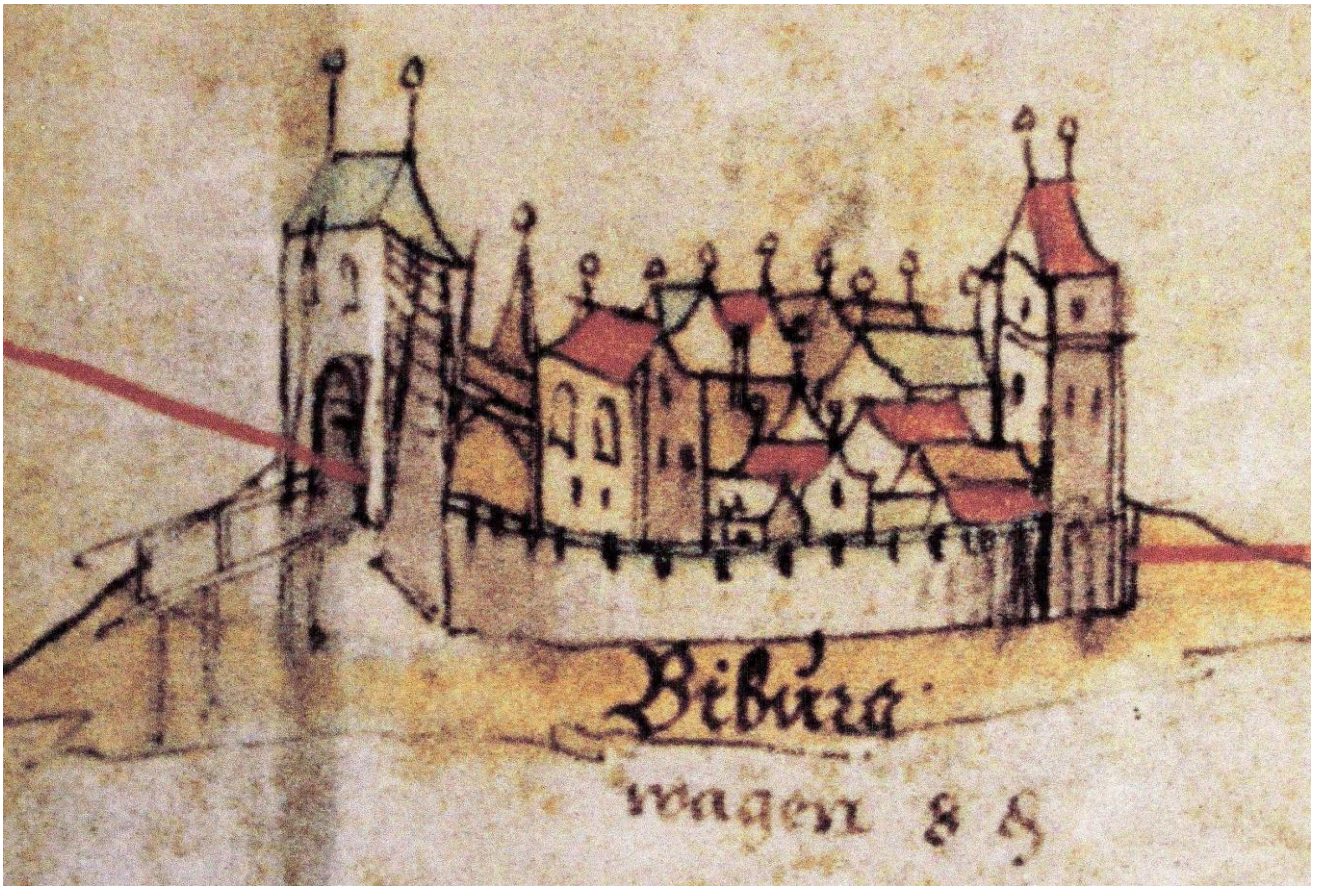 Biburg.
wagen 8 8